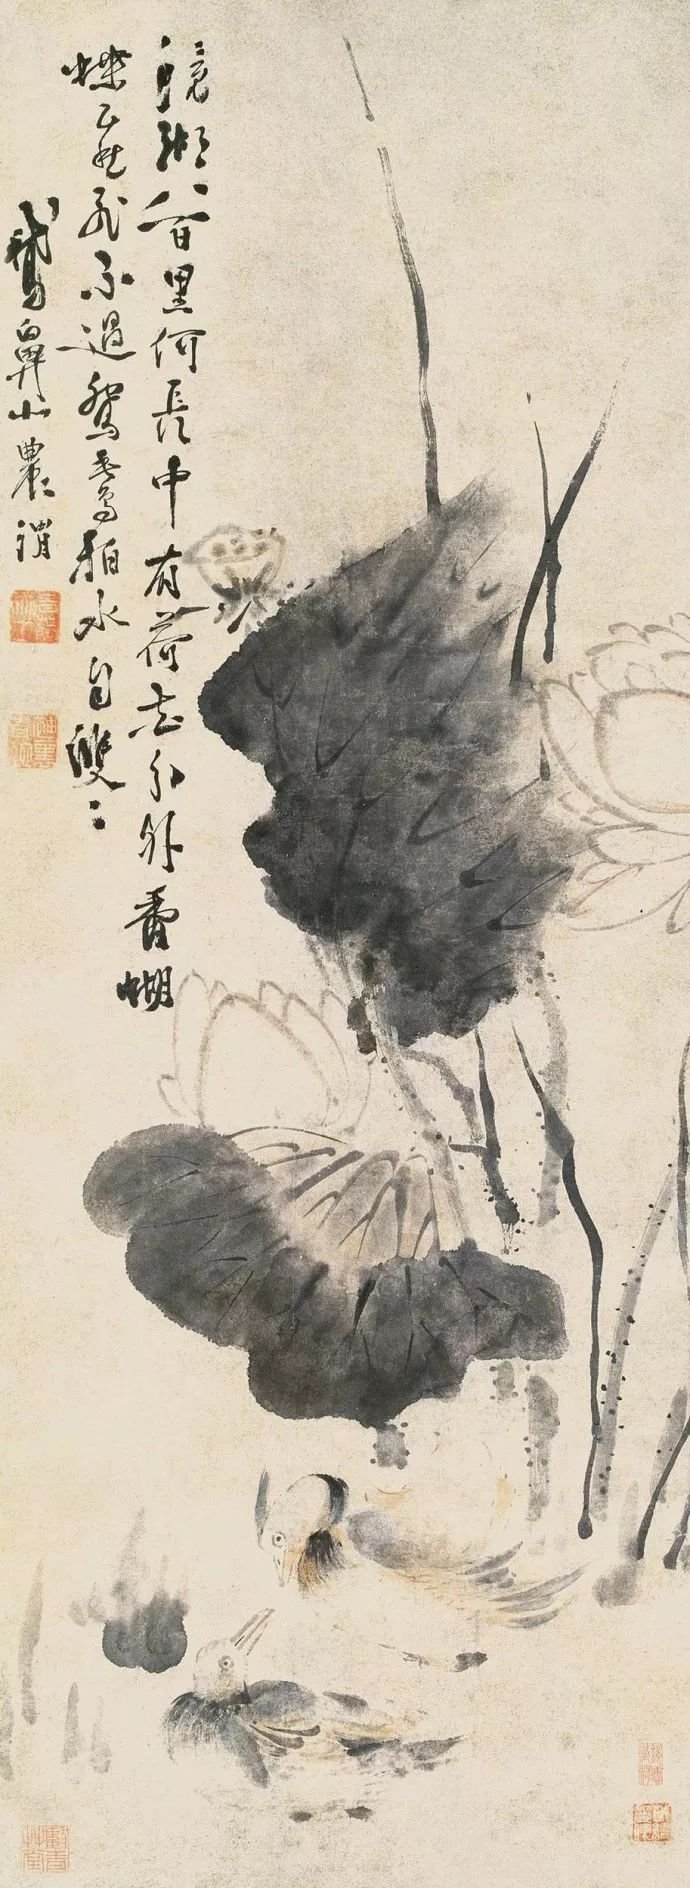 鏡湖八百里何長中有荷花分外香蝴
蝶正愁飛不過鴛鴦拍水自雙〻
鵞鼻山農渭